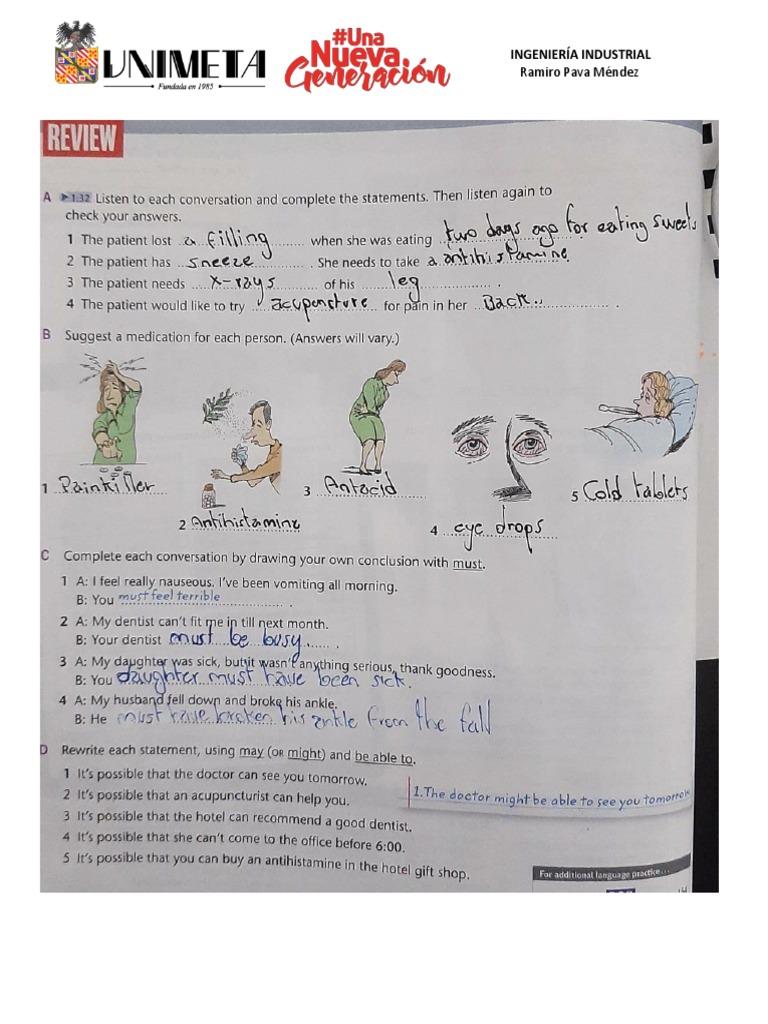 UNIMETA
Fundada en 1985
#Una
Nueva
Generación
INGENIERÍA INDUSTRIAL
Ramiro Pava Méndez
REVIEW
A ▶ 1:32 Listen to each conversation and complete the statements. Then listen again to
check your answers.
1 The patient lost a filling when she was eating two days ago for eating sweets
2 The patient has sneeze. She needs to take a antihistamine
3 The patient needs x-rays of his leg.
4 The patient would like to try acupuncture for pain in her Back.
B Suggest a medication for each person. (Answers will vary.)
1 Painkiller
2 Antihistamine
3 Antacid
4 eye drops
5 Cold tablets
C Complete each conversation by drawing your own conclusion with must.
1 A: I feel really nauseous. I've been vomiting all morning.
B: You must feel terrible.
2 A: My dentist can't fit me in till next month.
B: Your dentist must be busy.
3 A: My daughter was sick, but it wasn't anything serious, thank goodness.
B: You daughter must have been sick.
4 A: My husband fell down and broke his ankle.
B: He must have broken his ankle from the fall
D Rewrite each statement, using may (OR might) and be able to.
1 It's possible that the doctor can see you tomorrow.
2 It's possible that an acupuncturist can help you.
3 It's possible that the hotel can recommend a good dentist.
4 It's possible that she can't come to the office before 6:00.
5 It's possible that you can buy an antihistamine in the hotel gift shop.
1. The doctor might be able to see you tomorrow
For additional language practice...